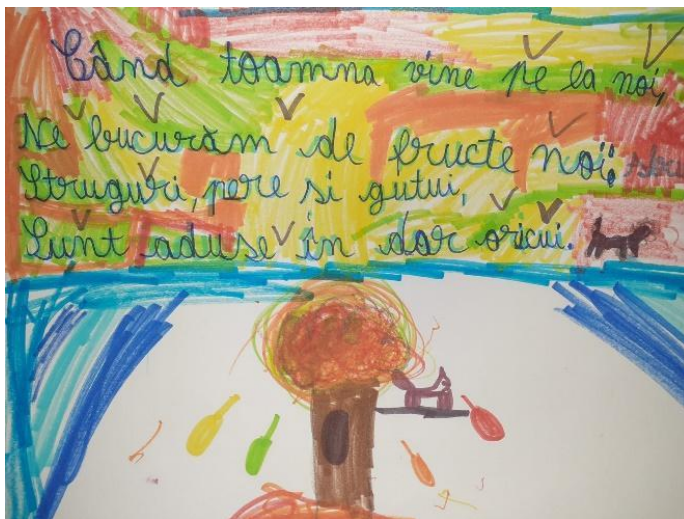 Când toamna vine pe la noi,
Ne bucurăm de fructe noi;
Struguri, pere si gutui,
Sunt aduse în dar oricui.